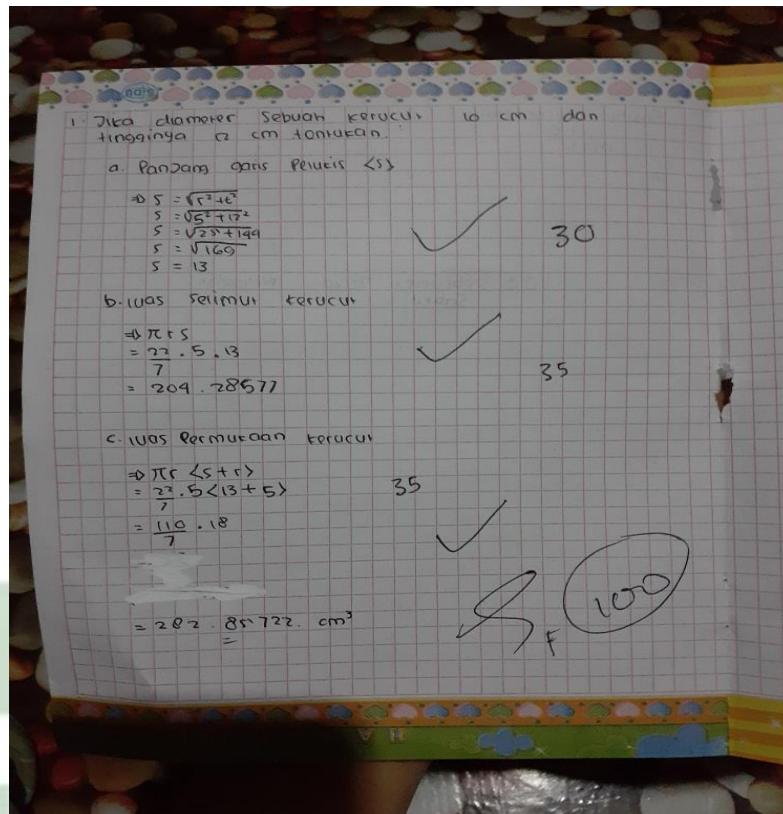 nais
1. Jika diameter sebuah kerucut 10 cm dan
tingginya 12 cm tontukan.
a. Panjang garis Pelukis <s>
⇒ s = √r²+t²
s = √5²+12²
s = √25+144
s = √169
s = 13
30
b. luas selimut kerucut
⇒ πrs
= 22/7 . 5 . 13
= 204.28577
35
c. luas Permukaan kerucut
⇒ πr <s+r>
= 22/7 . 5 <13+5>
35
= 110/7 . 18
= 282.85722. cm³
100